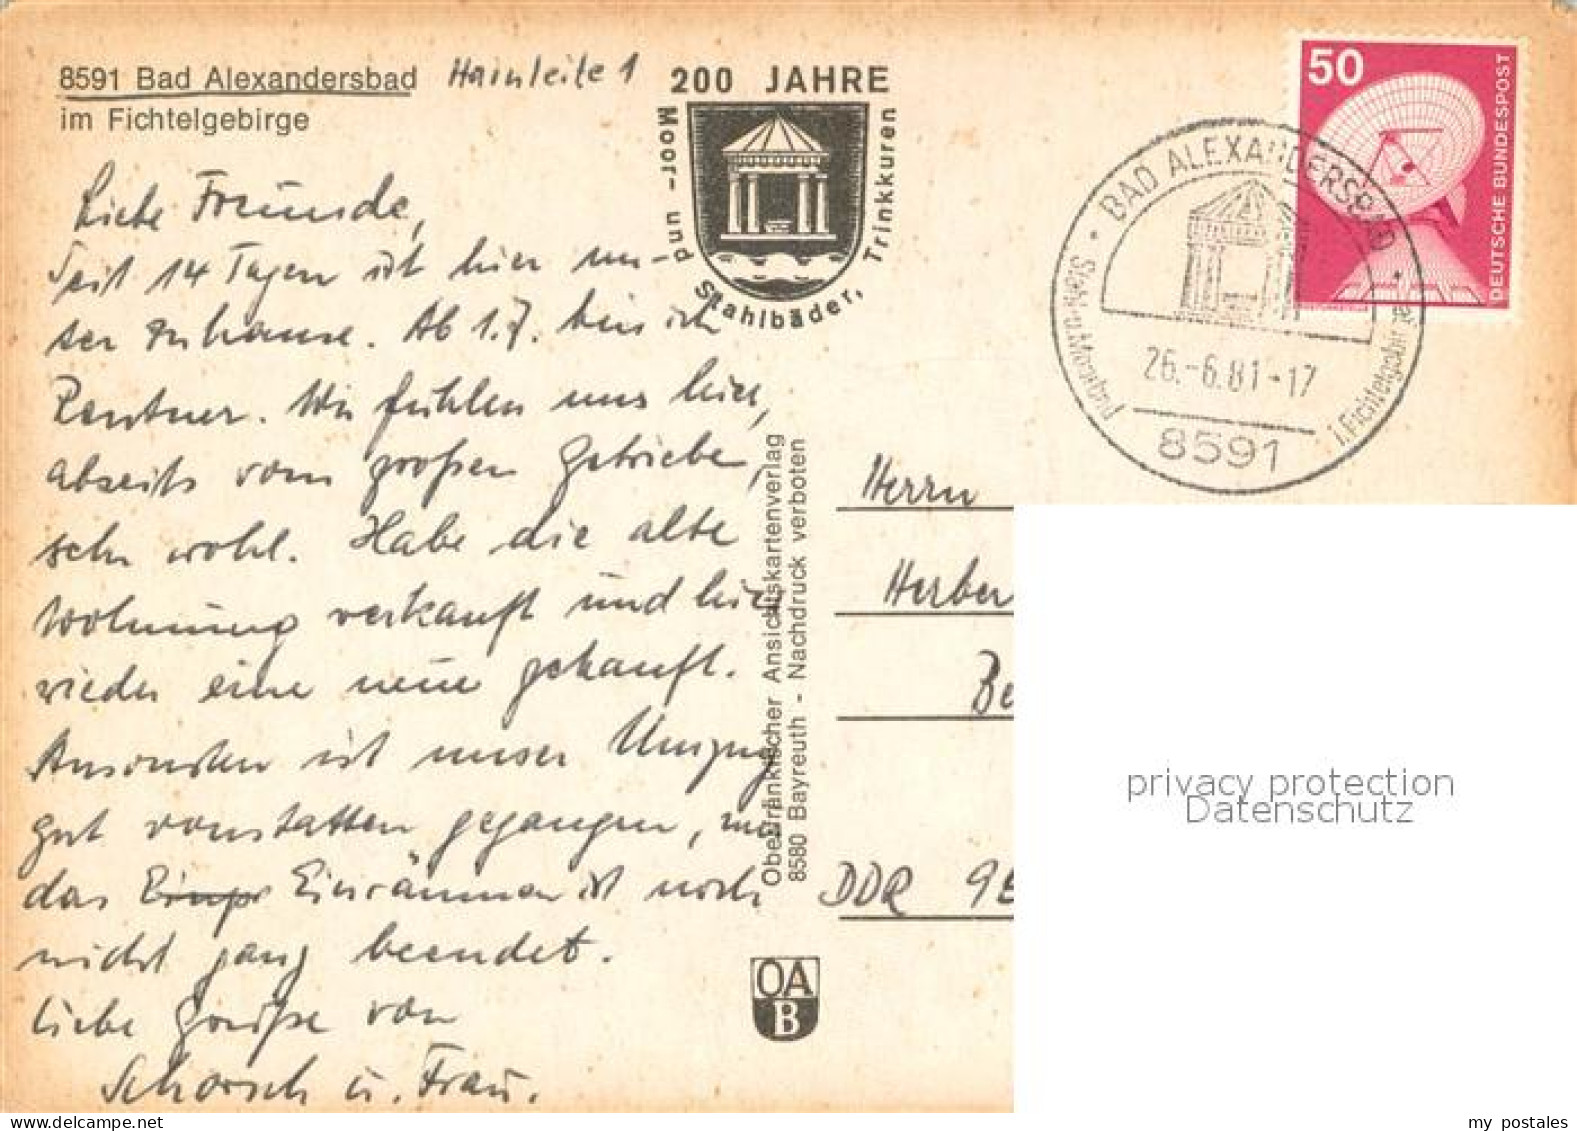 8591 Bad Alexandersbad Hainleite 1
im Fichtelgebirge
200 JAHRE
Moor- und Stahlbäder, Trinkkuren
50
DEUTSCHE BUNDESPOST
BAD ALEXANDERSBAD
i. Fichtelgebirge
26.-6.81-17
8591
Liebe Freunde,
Seit 14 Tagen ist hier un-
ser zuhause. Ab 1.7. bin ich
Rentner. Wir fühlen uns hier,
abseits vom großen Getriebe,
sehr wohl. Habe die alte
Wohnung verkauft und hier
wieder eine neue gekauft.
Ansonsten ist unser Umzug
gut vonstatten gegangen, nur
das Einräumen ist noch
nicht ganz beendet.
Liebe Grüße von
Schorsch u. Frau.
Oberfränkischer Ansichtskartenverlag
8580 Bayreuth - Nachdruck verboten
Herrn
Herber
Be
DDR 9
OA
B
privacy protection
Datenschutz
my postales